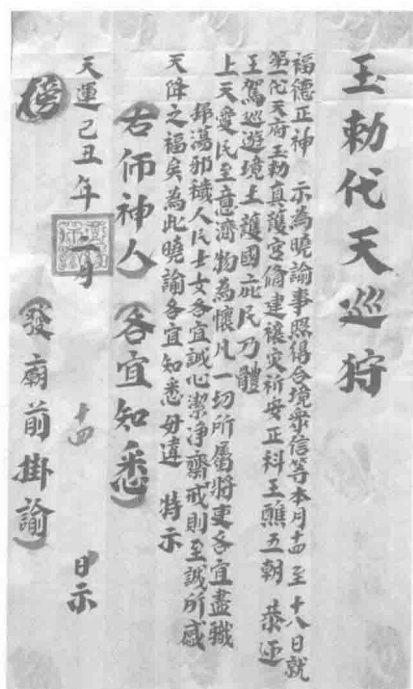 玉勅代天巡狩
福德正神　示為曉諭事照得合境衆信等本月十四至十八日就
第一代天府玉勅真護宮脩建禳灾祈安正科王醮五朝　恭迎
王駕巡遊境土護國庇民乃體
上天愛民至意濟物為懷凡一切所属將吏各宜盡職
掃蕩邪穢人民士女各宜誠心潔净齋戒則至誠所感
天降之福矣為此曉諭各宜知悉毋違　特示
右仰神人（各宜知悉）
天運己丑年三月　十四　日示
榜　（發廟前掛諭）